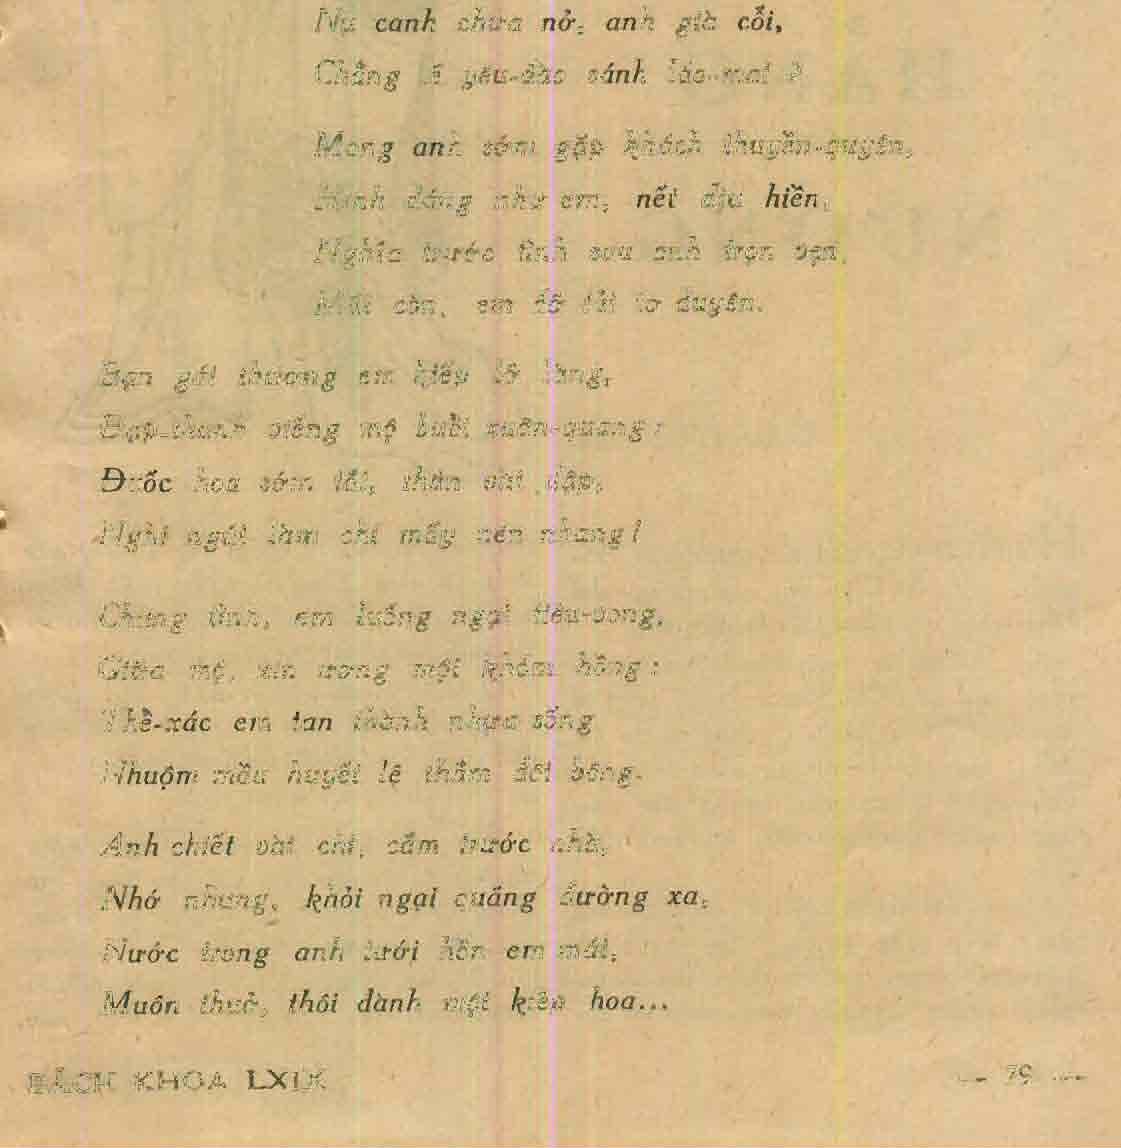 Nụ canh chưa nở, anh già cỗi,
Chẳng lẽ yêu-đào sánh lão-mai ?
Mong anh sớm gặp khách thuyền-quyên,
Hình dáng như em, nết dịu hiền,
Nghĩa trước tình sau anh trọn vẹn,
Mất còn, em đỡ tủi tơ duyên.
Bạn gái thương em kiếp lỡ làng,
Đạp-thanh viếng mộ buổi xuân-quang :
Đuốc hoa sớm tắt, thân vùi dập,
Nghi ngút làm chi mấy nén nhang !
Chung tình, em luống ngại tiêu-vong,
Giữa mộ, xin ương một khóm hồng :
Thể-xác em tan thành nhựa sống
Nhuộm mầu huyết lệ thắm đôi bông.
Anh chiết vài chi, cắm trước nhà,
Nhớ nhung, khỏi ngại quãng đường xa,
Nước trong anh tưới hồn em mát,
Muôn thuở, thôi dành một kiếp hoa...
BÁCH KHOA LXIX
— 79 —